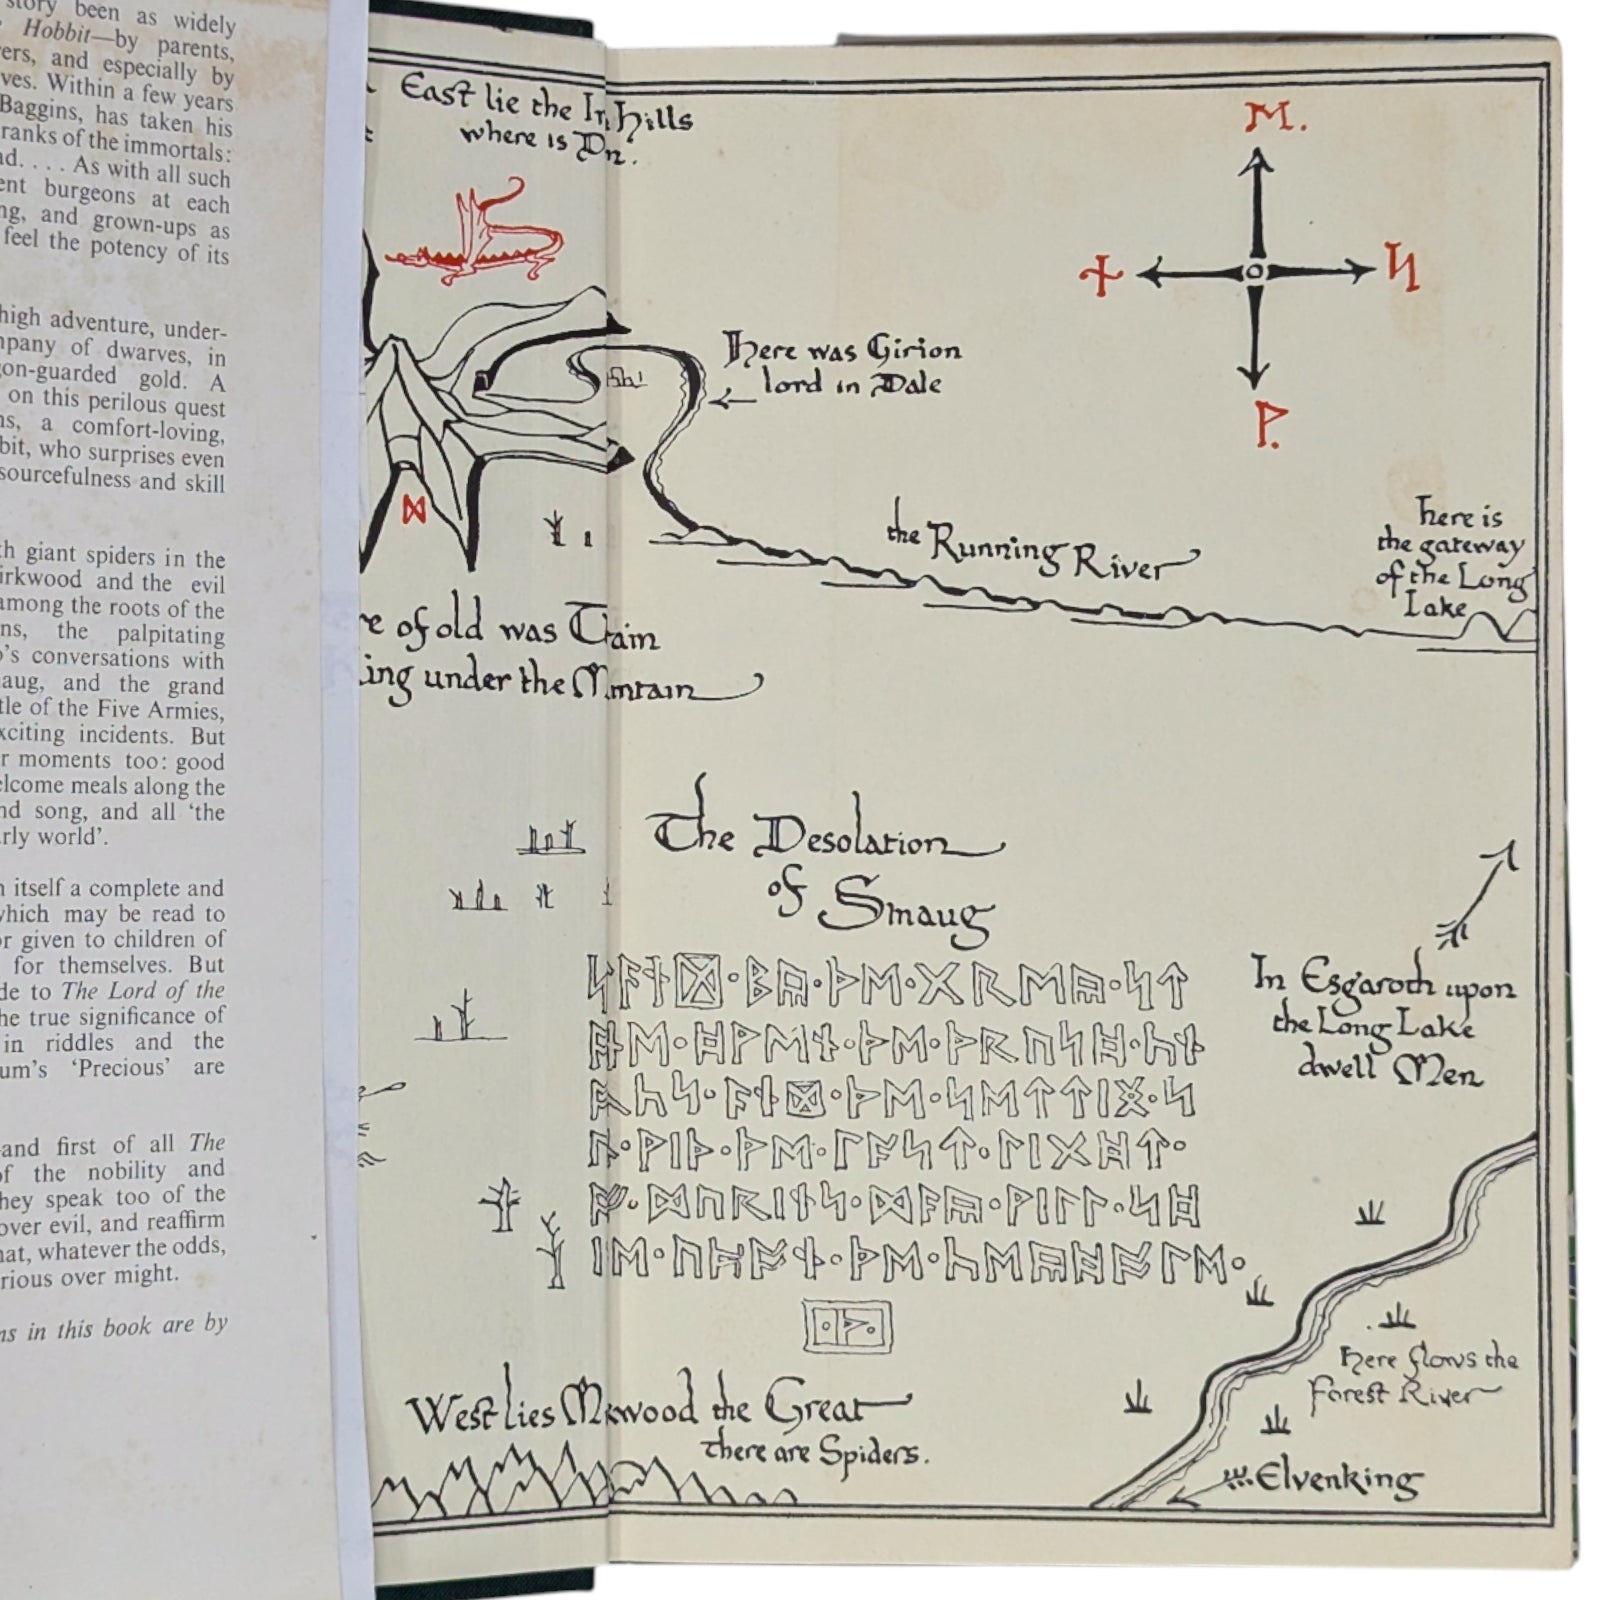 story been as widely
Hobbit—by parents,
ers, and especially by
ves. Within a few years
Baggins, has taken his
ranks of the immortals:
ad. . . . As with all such
ent burgeons at each
ng, and grown-ups as
feel the potency of its
high adventure, under-
mpany of dwarves, in
gon-guarded gold. A
on this perilous quest
ns, a comfort-loving,
bit, who surprises even
sourcefulness and skill
th giant spiders in the
irkwood and the evil
among the roots of the
ns, the palpitating
o's conversations with
aug, and the grand
tle of the Five Armies,
xciting incidents. But
r moments too: good
elcome meals along the
nd song, and all 'the
arly world'.
n itself a complete and
which may be read to
or given to children of
for themselves. But
de to The Lord of the
he true significance of
in riddles and the
um's 'Precious' are
and first of all The
of the nobility and
hey speak too of the
over evil, and reaffirm
hat, whatever the odds,
rious over might.
ns in this book are by
East lie the Hills
where is
ᛗ.
᛭
ᛋ
ᚹ.
Here was Girion
lord in Dale
ᛞ
the Running River
here is
the gateway
of the Long
Lake
re of old was Thrain
King under the Mountain
The Desolation
of Smaug
ᛋᛏᚪᚾᛞ·ᛒᚣ·ᚦᛖ·ᚷᚱᛖᚣ·ᛋᛏ
ᚩᚾᛖ·ᚻᚹᛖᚾ·ᚦᛖ·ᚦᚱᚢᛋᚻ·ᚳᚾ
ᚩᚳᛋ·ᚪᚾᛞ·ᚦᛖ·ᛋᛖᛏᛏᛁᛝ·ᛋ
ᚢᚾ·ᚹᛁᚦ·ᚦᛖ·ᛚᚪᛋᛏ·ᛚᛁᚷᚻᛏ·
ᚩᚠ·ᛞᚢᚱᛁᚾᛋ·ᛞᚪᚣ·ᚹᛁᛚᛚ·ᛋᚻ
ᛁᚾᛖ·ᚢᛈᚩᚾ·ᚦᛖ·ᚳᛖᚣᚻᚩᛚᛖ·
·ᚦ·
In Esgaroth upon
the Long Lake
dwell Men
West lies Mirkwood the Great
there are Spiders.
Here flows the
Forest River
Elvenking